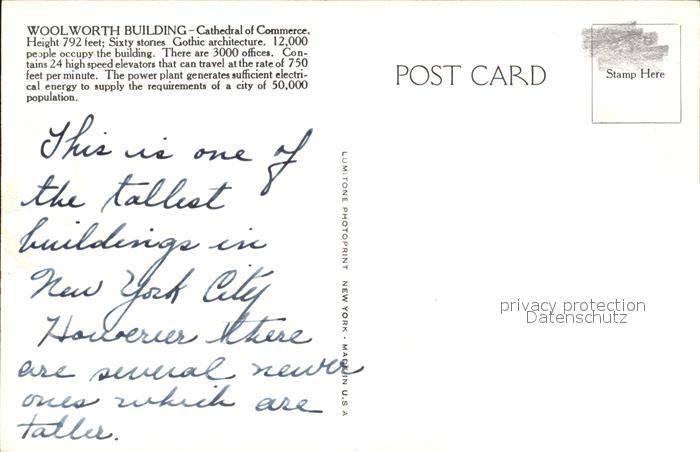 WOOLWORTH BUILDING – Cathedral of Commerce.
Height 792 feet; Sixty stories Gothic architecture. 12,000
people occupy the building. There are 3000 offices. Con-
tains 24 high speed elevators that can travel at the rate of 750
feet per minute. The power plant generates sufficient electri-
cal energy to supply the requirements of a city of 50,000
population.
POST CARD
Stamp Here
This is one of
the tallest
buildings in
New York City
However there
are several newer
ones which are
taller.
LUMITONE PHOTOPRINT NEW YORK - MADE IN U.S.A
privacy protection
Datenschutz